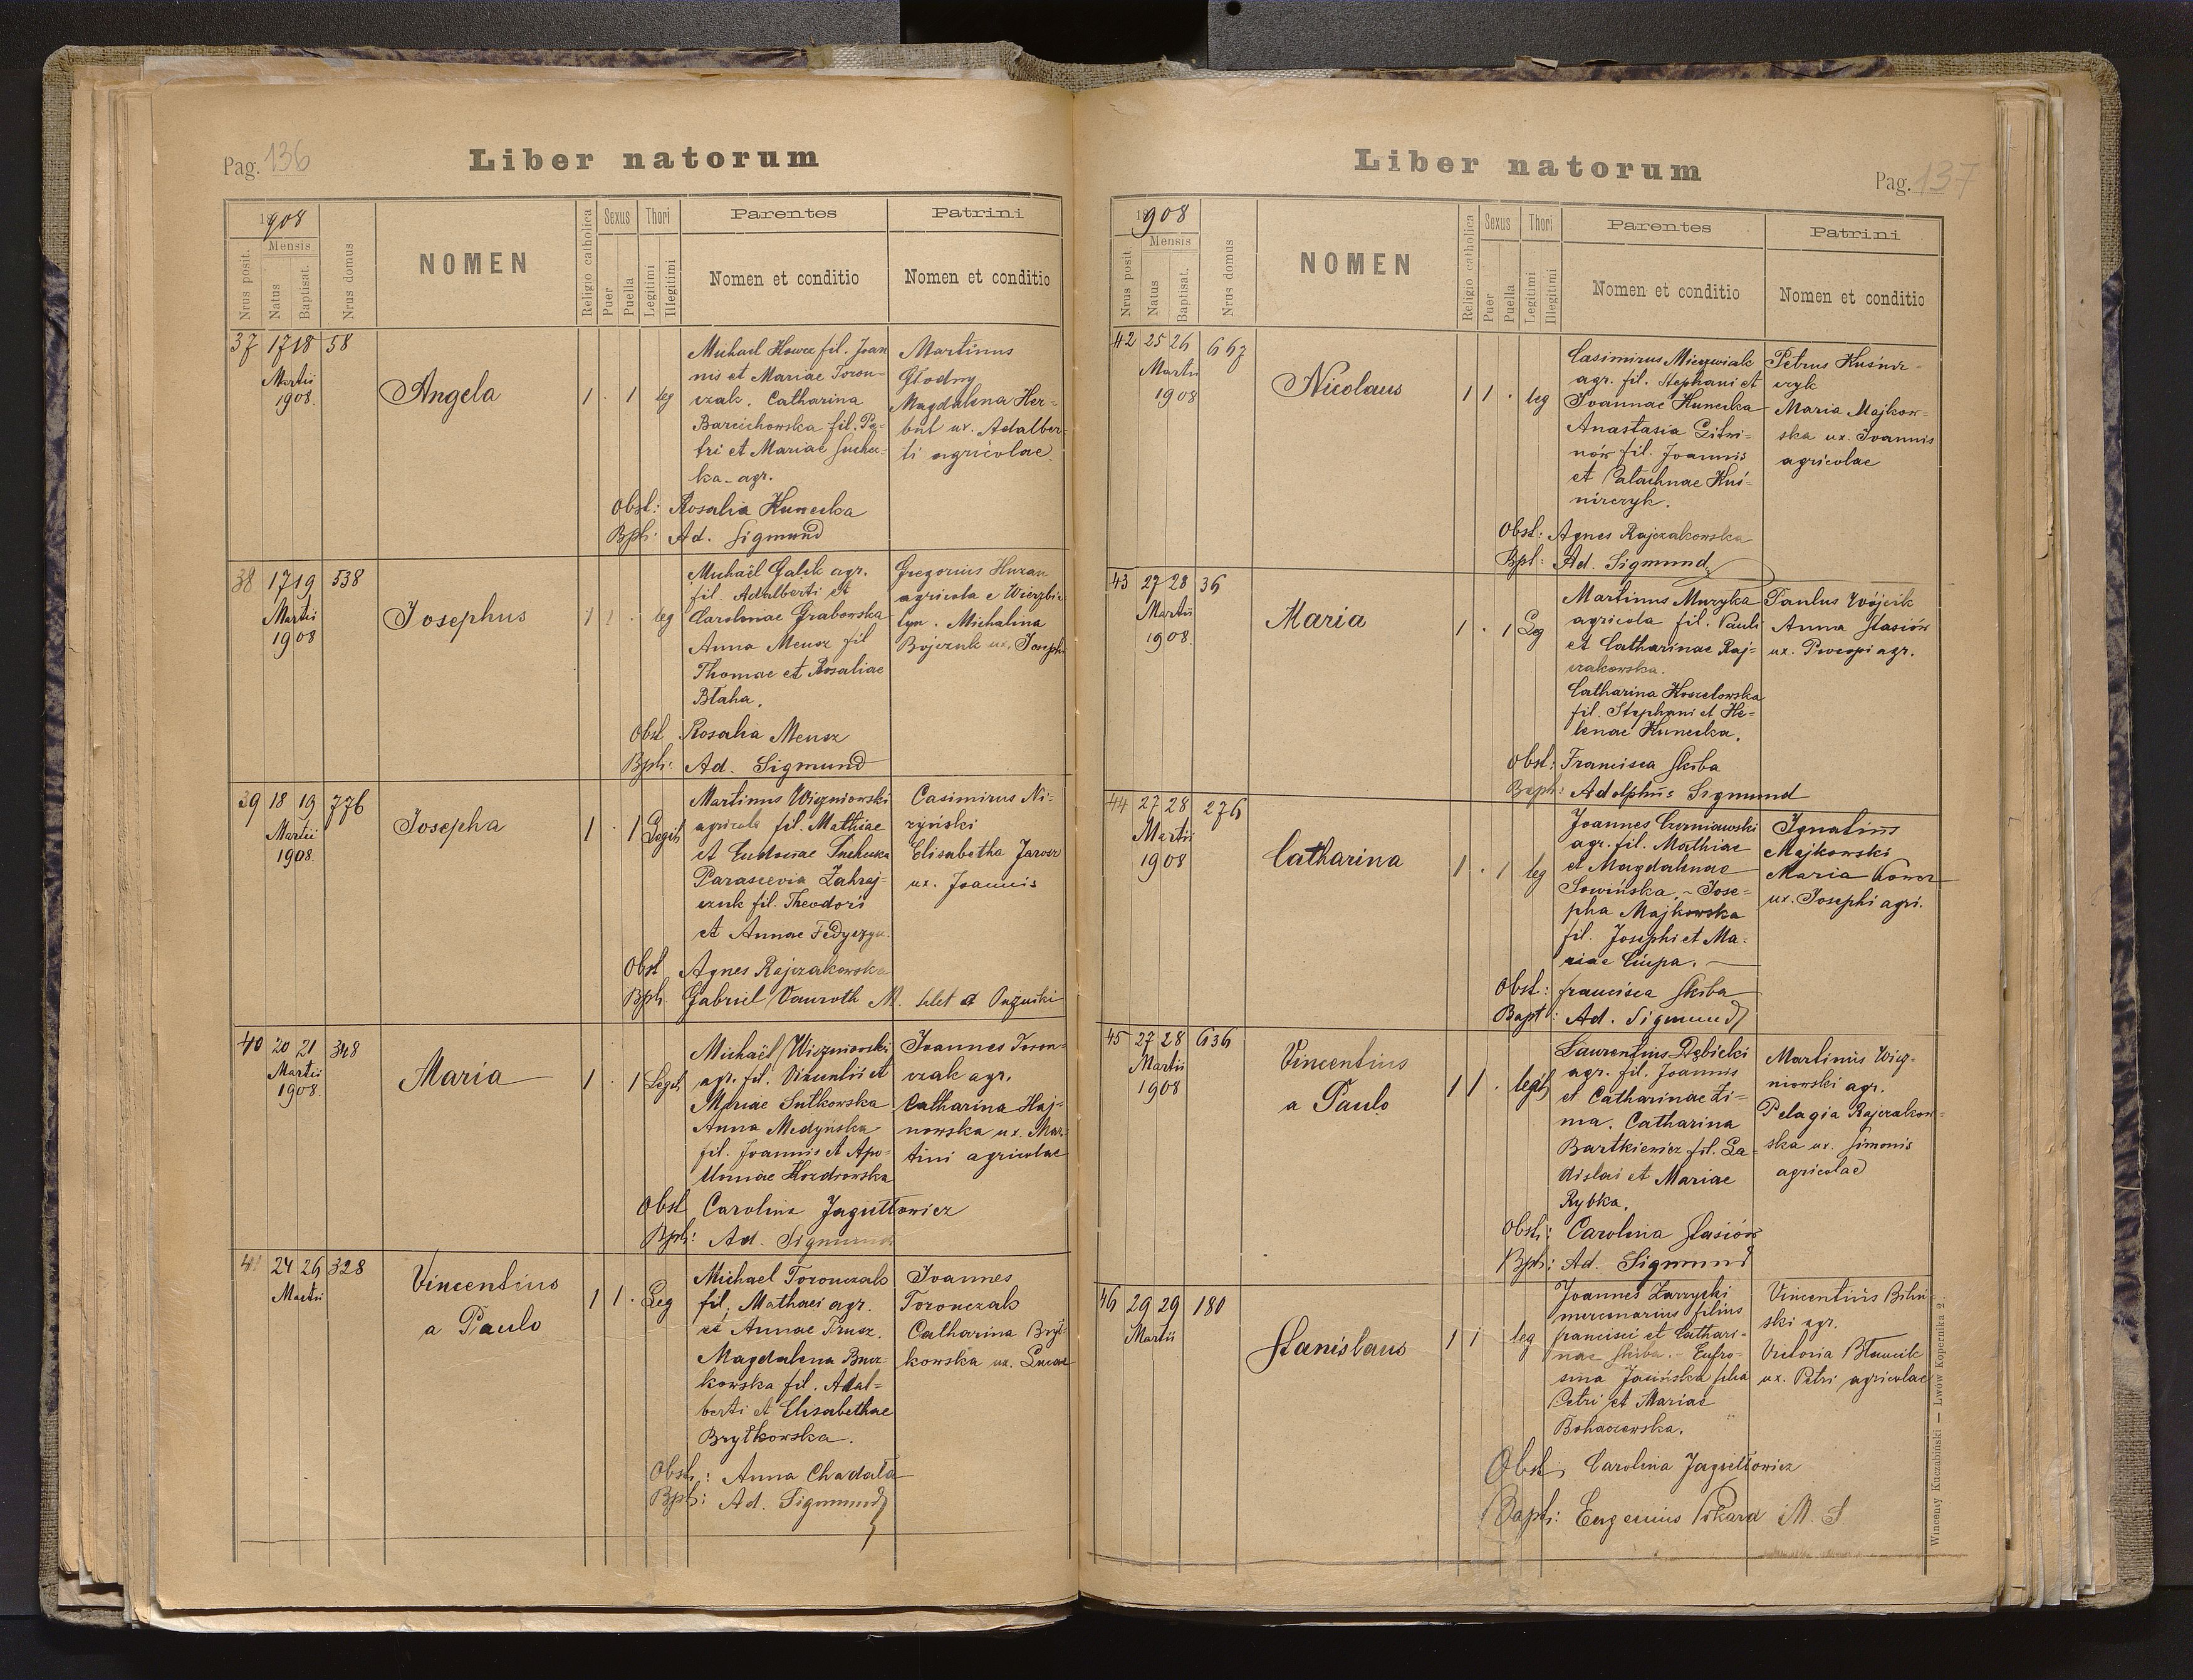 Pag. 136
Liber natorum
1908
Mensis
Nrus posit.
Natus
Baptisat.
Nrus domus
NOMEN
Religio catholica
Sexus
Puer
Puella
Thori
Legitimi
Illegitimi
Parentes
Nomen et conditio
Patrini
Nomen et conditio
37 17 18 58
Martii
1908.
Angela
1 . 1 leg
Michael Kowcz fil. Joan
nis et Mariae Toron-
czak. Catharina
Barcichowska fil. Pe-
tri et Mariae Suche-
ka - agr.
Martinus
Głodny
Magdalena Her-
but ux. Adalber-
ti agricolae
Obst: Rosalia Kunecka
Bpt: Ad. Sigmund
38 17 19 538
Martii
1908
Josephus
1 1 . leg
Michaël Galik agr.
fil. Adalberti et
Carolinae Grabowska
Anna Meusz fil
Thomae et Rosaliae
Błaha.
Gregorius Huzan
agricola e Wierzbo-
lyn. Michalina
Bojczuk ux. Josephi
Obst Rosalia Meusz
Bpt: Ad. Sigmund
39 18 19 776
Martii
1908.
Josepha
1 . 1 Legit
Martinus Wiszniowski
agricola fil. Mathiae
et Eudoxiae Suchecka
Parascevia Zahraj-
czuk fil. Theodori
et Annae Fedyczyn.
Casimirus Ni-
zyński
Elisabetha Jarosz
ux. Joannis
Obst Agnes Rajzakowska
Bpt. Gabriel Vauroth M.
40 20 21 348
Martii
1908.
Maria
1 . 1 Legit
Michaël Wiszniowski
agr. fil. Vincentii et
Mariae Sutkowska
Anna Medyńska
fil. Joannis et Apo-
lloniae Hozdrowska
Joannes Toron-
czak agr.
Catharina Haj-
nowska ux. Mar-
tini agricolae
Obst Carolina Jagiełłowicz
Bpt: Ad. Sigmund
41 24 26 328
Martii
Vincentius
a Paulo
1 1 . Leg
Michael Toronczak
fil. Mathaei agr.
et Annae Trusz.
Magdalena Bucz-
kowska fil. Adal-
berti et Elisabethae
Brytkowska.
Joannes
Toronczak
Catharina Bryt-
kowska ux. Lucae
Obst: Anna Chadała
Bpt: Ad. Sigmund
Liber natorum
Pag. 137
1908
Mensis
Nrus posit.
Natus
Baptisat.
Nrus domus
NOMEN
Religio catholica
Sexus
Puer
Puella
Thori
Legitimi
Illegitimi
Parentes
Nomen et conditio
Patrini
Nomen et conditio
42 25 26 667
Martii
1908
Nicolaus
1 1 . leg
Casimirus Mierzwiak
agr. fil. Stephani et
Joannae Kunecka
Anastasia Litwi-
nów fil. Joannis
et Palachnae Kuś-
nirczyk.
Petrus Kuśnir-
czyk
Maria Majkow-
ska ux. Joannis
agricolae
Obst: Agnes Rajzakowska
Bpt: Ad. Sigmund
43 27 28 36
Martii
1908.
Maria
1 . 1 Leg
Martinus Muzyka
agricola fil. Pauli
et Catharinae Raj-
czakowska.
Catharina Koszelowska
fil. Stephani et He-
lenae Kunecka.
Paulus Wójcik
Anna Stasiów
ux. Procopi agr.
Obst: Francisca Skiba
Bapt: Adolphus Sigmund
44 27 28 276
Martii
1908
Catharina
1 . 1 leg
Joannes Czerniawski
agr. fil. Mathiae
et Magdalenae
Sowińska. - Jose-
pha Majkowska
fil. Josephi et Ma-
riae Ciupa.
Ignatius
Majkowski
Maria Kowcz
ux. Josephi agri.
Obst: francisca Skiba
Bapt: Ad. Sigmund
45 27 28 636
Martii
1908
Vincentius
a Paulo
1 1 . legit
Laurentius Dębicki
agr. fil. Joannis
et Catharinae Zi-
ma. Catharina
Bartkiewicz fil. La-
dislai et Mariae
Rybka.
Martinus Wisz-
niowski agr.
Pelagia Rajczakow-
ska ux. Simonis
agricolae
Obst: Carolina Stasiów
Bpt: Ad. Sigmund
46 29 29 180
Martii
Stanislaus
1 1 leg
Joannes Zarzycki
mercenarius filius
francisci et Cathari-
nae Skiba. - Eufro-
sina Jasińska filia
Petri et Mariae
Bohaczewska.
Vincentius Biliń-
ski agr.
Victoria Bławcik
ux. Petri agricolae
Obst: Carolina Jagiełłowicz
Bapt: Eugenius Piskard M. S.
Wincenty Kuczabiński — Lwów Kopernika 2.